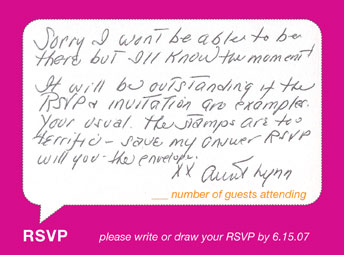 Sorry I wont be able to be
there but I'll Know the moment
It will be outstanding if the
RSVP & invitation are examples.
Your usual. The stamps are too
terrific - save my answer RSVP
will you - the envelope.
XX Aunt Lynn
___ number of guests attending
RSVP please write or draw your RSVP by 6.15.07